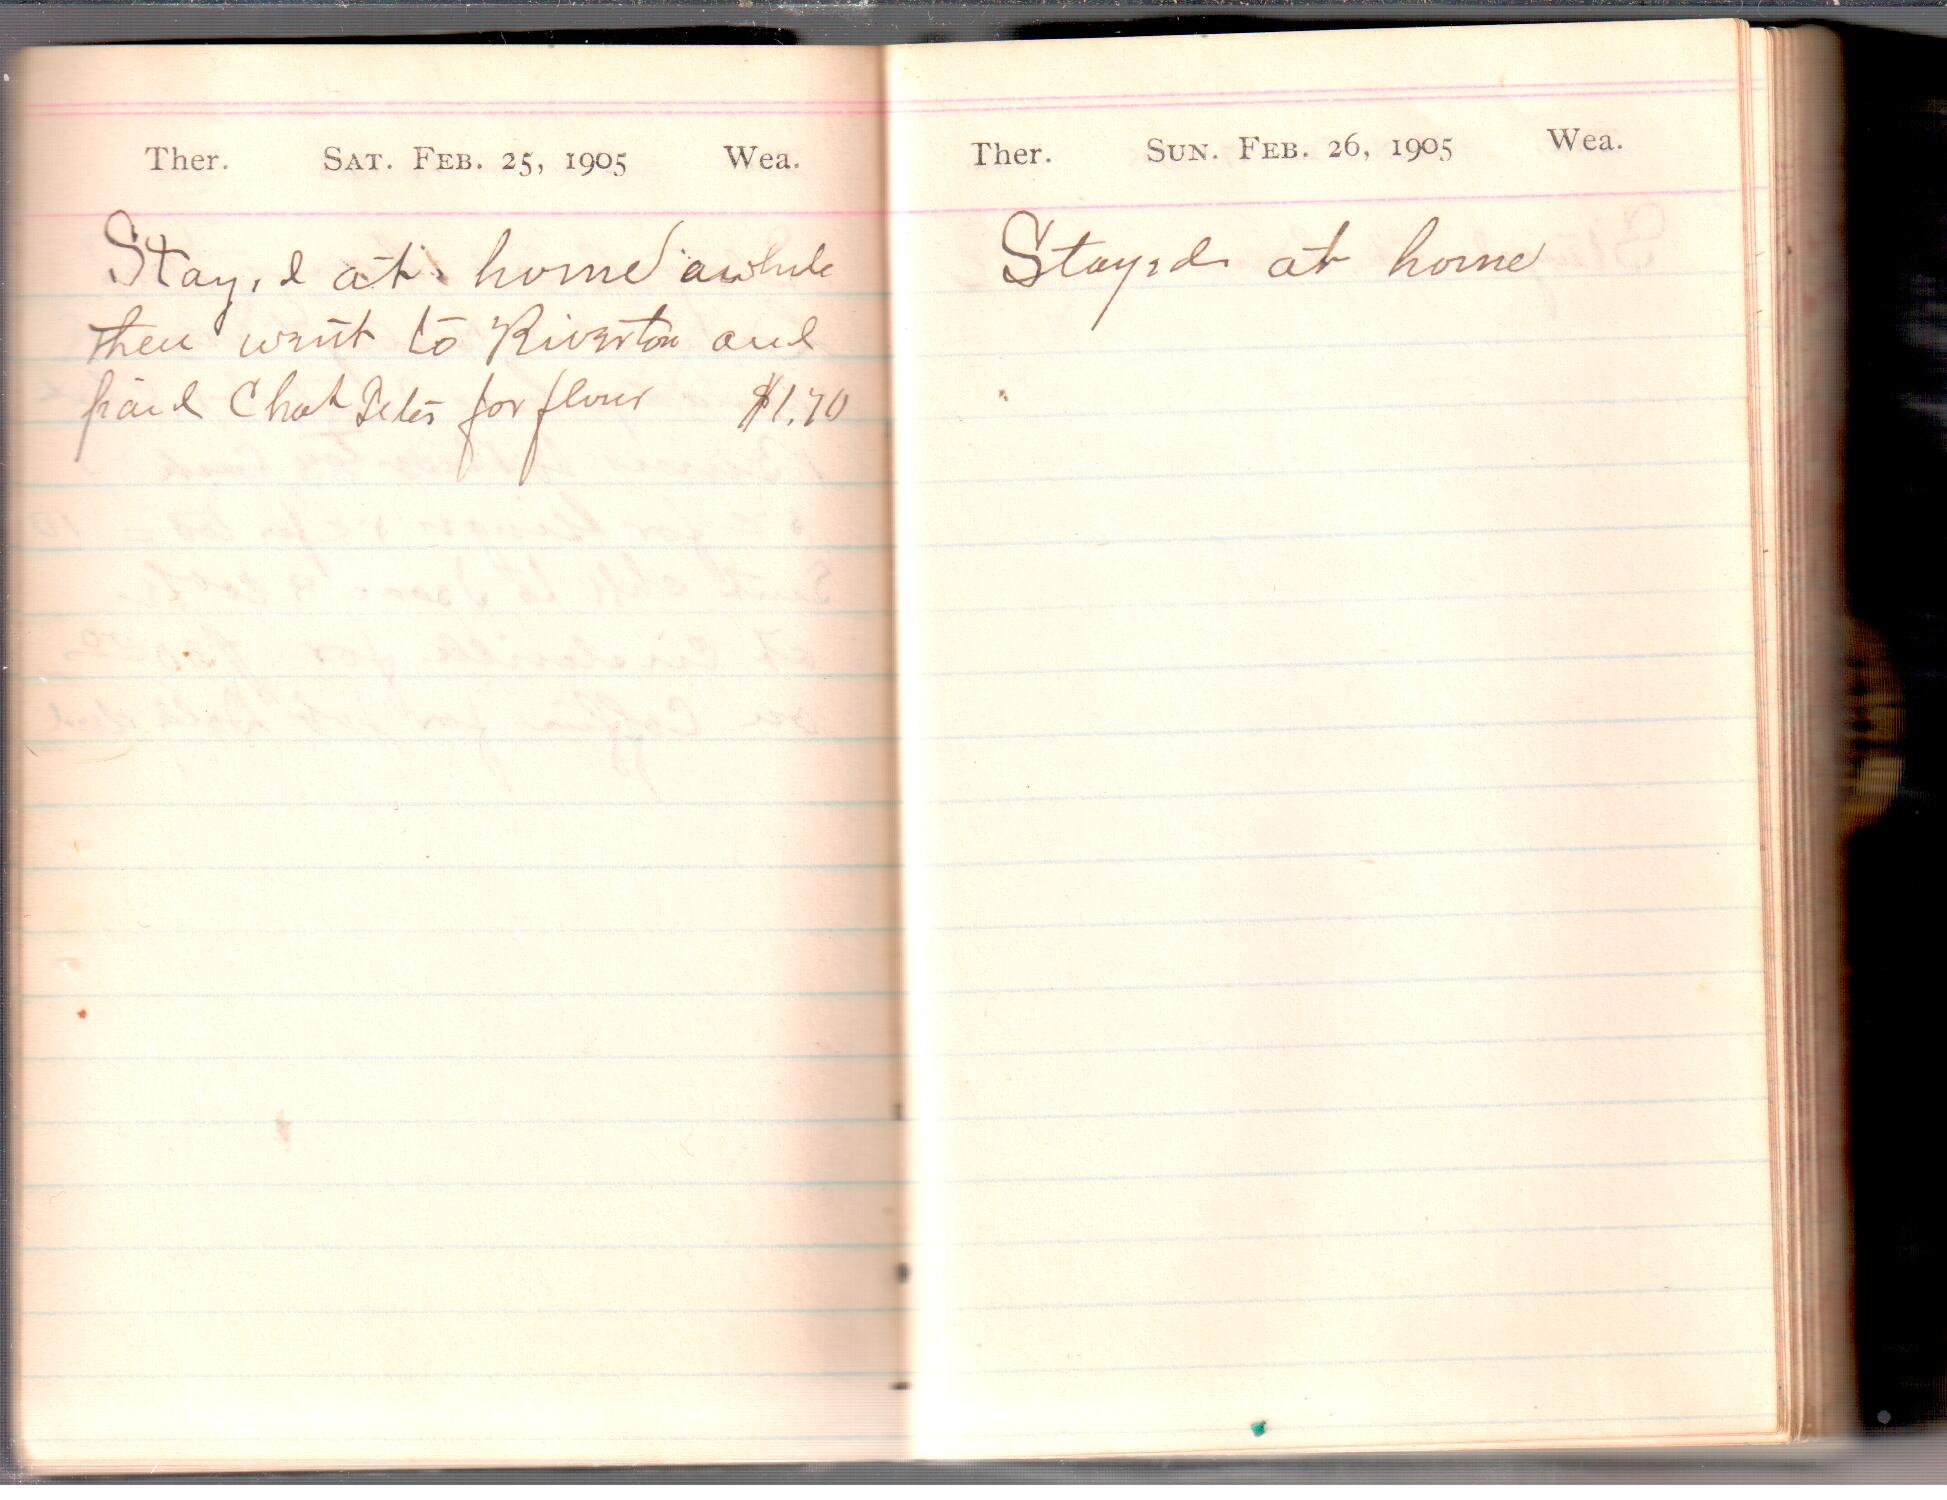 Ther. Sat. Feb. 25, 1905 Wea.
Stay,d at home awhile
then went to Riverton and
paid Chat for flour $1.70
Ther. Sun. Feb. 26, 1905 Wea.
Stayed at home